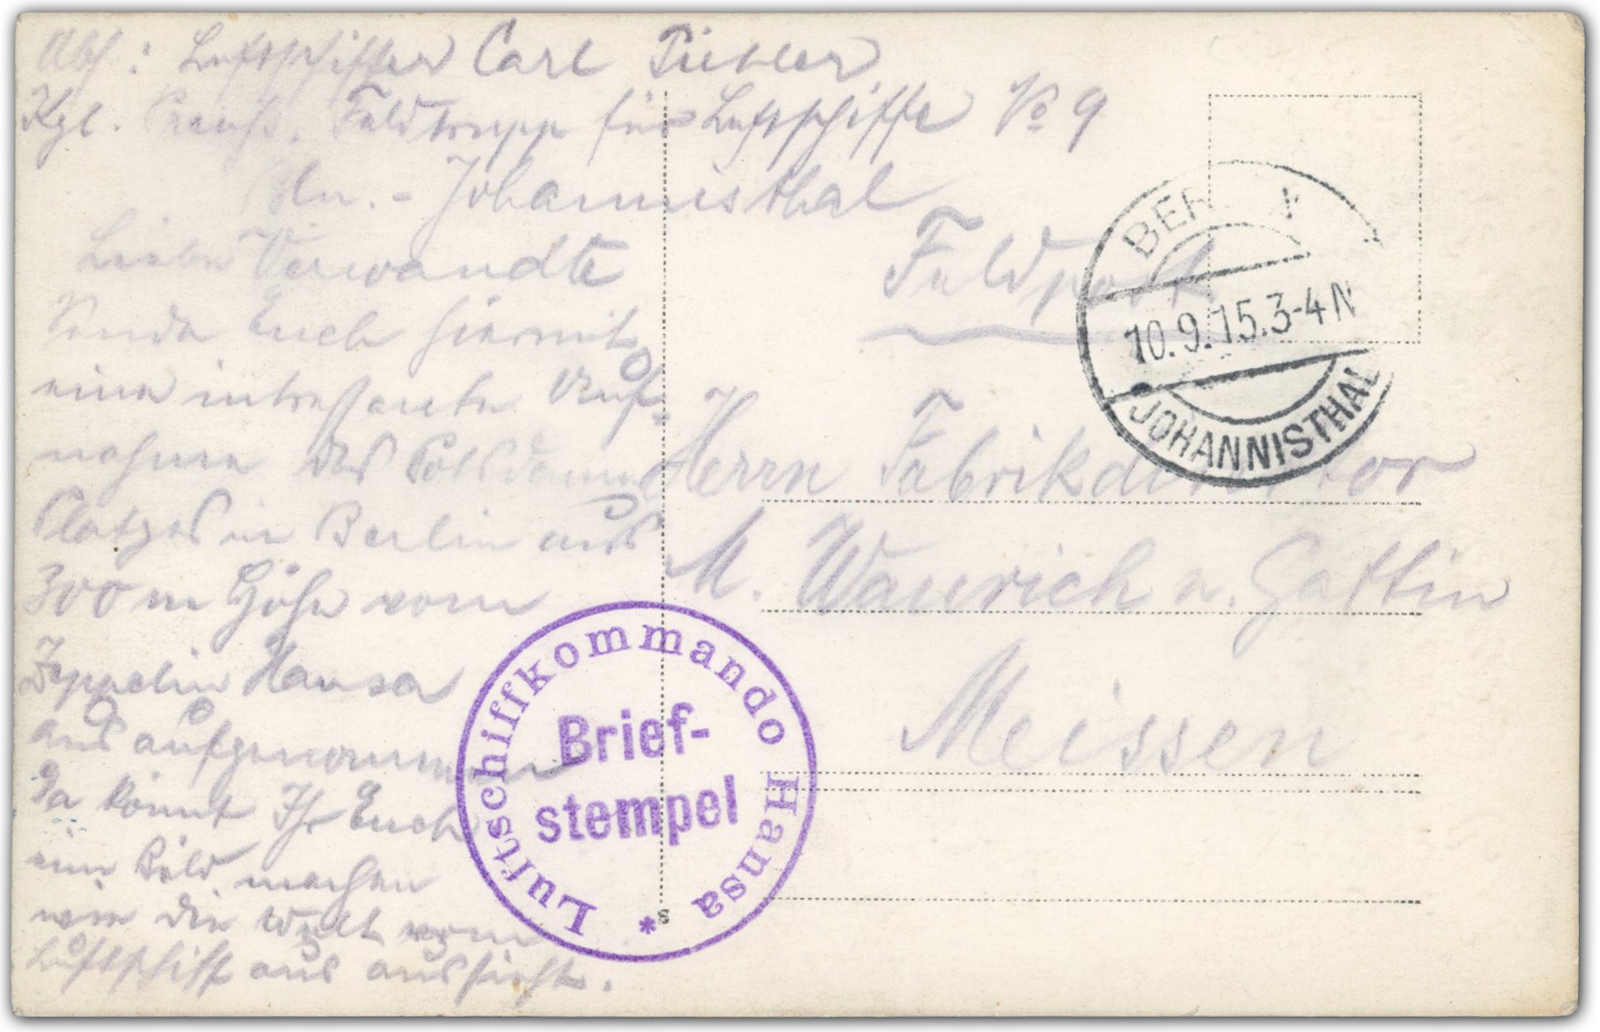 Abs: Luftschiffer Carl Pichler
Kgl. Preuß. Feldtrupp für Luftschiffe No 9
Bln.-Johannisthal
Liebe Verwandte
Sende Euch hiermit
eine intressante Auf-
nahme des Potsdamer
Platzes in Berlin aus
300 m Höhe vom
Zeppelin Hansa
aus aufgenommen
Da könnt Ihr Euch
ein Bild machen
wie die Welt vom
Luftschiff aus aussieht.
Feldpost
BER
10.9.15.3-4N
JOHANNISTHAL
Herrn Fabrikdirektor
M. Wanrich u. Gattin
Meissen
Luftschiffkommando Hansa *
Brief-
stempel
s